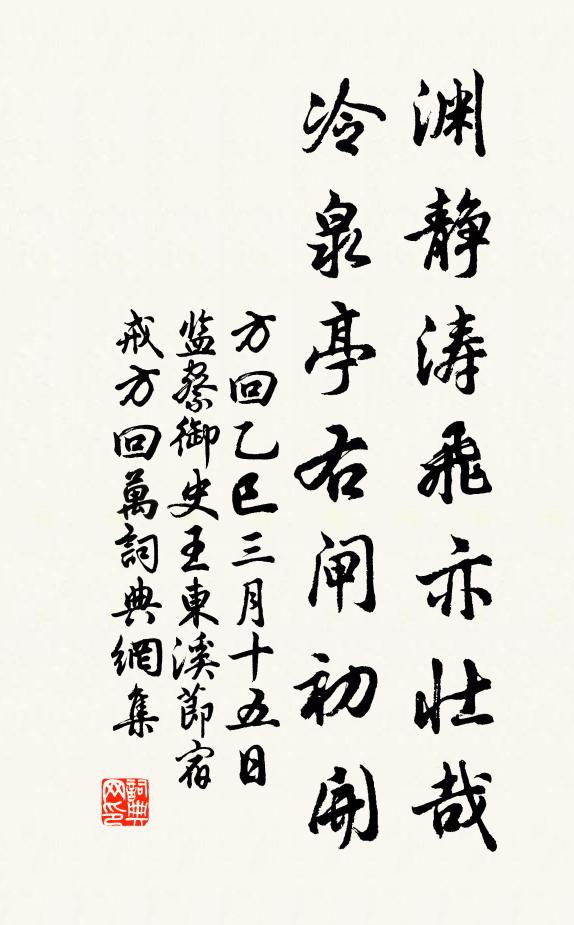 渊静涛飛亦壮哉
冷泉亭右闸初開
方回乙巳三月十五日
监察御史王東溪節宿
戒方回萬詞典網集
詞典网印